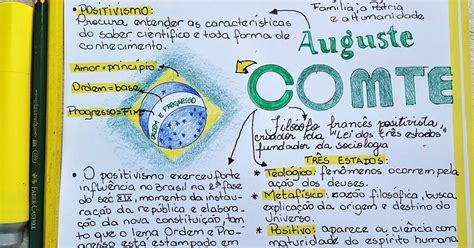 • POSITIVISMO:
Procura entender as características
do saber científico e toda forma de
conhecimento.
Família, a Pátria
e a Humanidade
Auguste
COMTE
Amor = princípio
Ordem = base
Progresso = Fim
ORDEM E PROGRESSO
Filósofo francês positivista,
criador da "Lei dos três estados"
fundador da sociologia
TRÊS ESTADOS:
• Teológico: fenômenos ocorrem pela
ação dos deuses.
• Metafísico: razão filosófica, busca
explicação da origem e destino do
Universo.
• Positivo: aparece a ciência com
• O positivismo exerceu forte
influência no Brasil na 2ª fase
do séc XIX, momento da instau-
ração da república e elabora-
ção da nova constituição, tan-
to que o lema Ordem e Pro-
gresso está estampado em
FABER-CASTELL